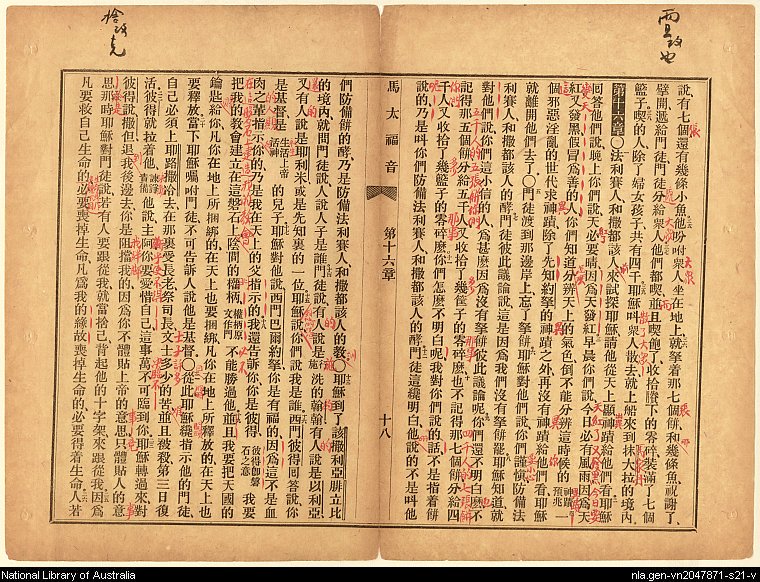 雨改也
說、有七個還有幾條小魚、他吩咐衆人坐在地上、就拏着那七個餅、和幾條魚、祝謝了、
擘開遞給門徒、門徒分給衆人、他們都喫、並且喫飽了、收拾賸下的零碎裝滿了七個
籃子、喫的人除了婦女孩子共有四千、耶穌叫衆人散去、就上船來到抹大拉的境內、
第十六章○法利賽人和撒都該人、來試探耶穌、請他從天上顯神蹟給他們看、耶穌
回答他們說、晚上你們說、天必要晴、因爲天發紅、早晨你們說、今日必有風雨、因爲天
紅又發黑、假冒爲善的人、你們知道分辨天上的氣色、倒不能分辨這時候的神蹟預兆一
個邪惡淫亂的世代求神蹟、除了先知約拏的神蹟之外、再沒有神蹟給他們看、耶穌
就離開他們去了○門徒渡到那邊岸上、忘了拏餅、耶穌對他們說、你們謹愼防備法
利賽人和撒都該人的酵、門徒彼此議論說、這是因爲我們沒有拏餅罷、耶穌知道就
對他們說、你們這小信的人、爲甚麼因爲沒有拏餅彼此議論呢、你們還不明白麼、不
記得那五個餅分給五千人、又收拾了幾籃子的零碎麼、也不記得那七個餅分給四
千人、又收拾了幾筐子的零碎麼、你們怎麼不明白呢、我對你們說的話、不是指着餅
說的、乃是叫你們防備法利賽人和撒都該人的酵、門徒這纔明白、他說的不是叫他
馬太福音 第十六章 十八
們防備餅的酵、乃是防備法利賽人和撒都該人的教、○耶穌到了該撒利亞腓立比
的境內、就問門徒說、人說人子是誰、門徒說、有的說是施洗的約翰、有人說是以利亞、
又有人說是耶利米、或是先知裏的一位、耶穌說、你們說我是誰、西門彼得回答說、你
是基督、是生活上帝活神的兒子、耶穌對他說、西門巴爾約拏、你是有福的、因爲這不是血
肉之輩指示你的、乃是我在天上的父指示的、我還告訴你、你是彼得、彼得卽磐石之意我要
把我的教會建立在這磐石上、陰間的權柄、權柄原文作門不能勝過他、並且我要把天國的
鑰匙給你、凡你在地上所捆綁的、在天上也要捆綁、凡你在地上所釋放的、在天上也
要釋放、當下耶穌囑咐門徒不可告訴人說他是基督○從此耶穌纔指示他的門徒、
自己必須上耶路撒冷去、在那裏受長老祭司長文士多少的苦、並且被殺、第三日復
活、彼得就拉着他、諫諍責備他說、主阿、你要愛惜自己、這事萬不可臨到你、耶穌轉過來、對
彼得說、撒但、退我後邊去、你是阻擋我的、因爲你不體貼上帝的意思、只體貼人的意
思、那時耶穌對門徒說、若有人要跟從我、就當捨己、背起他的十字架來跟從我、因爲
凡要救自己生命的、必要喪掉生命、凡爲我的緣故喪掉生命的、必要得着生命、人若
National Library of Australia
nla.gen-vn2047871-s21-v